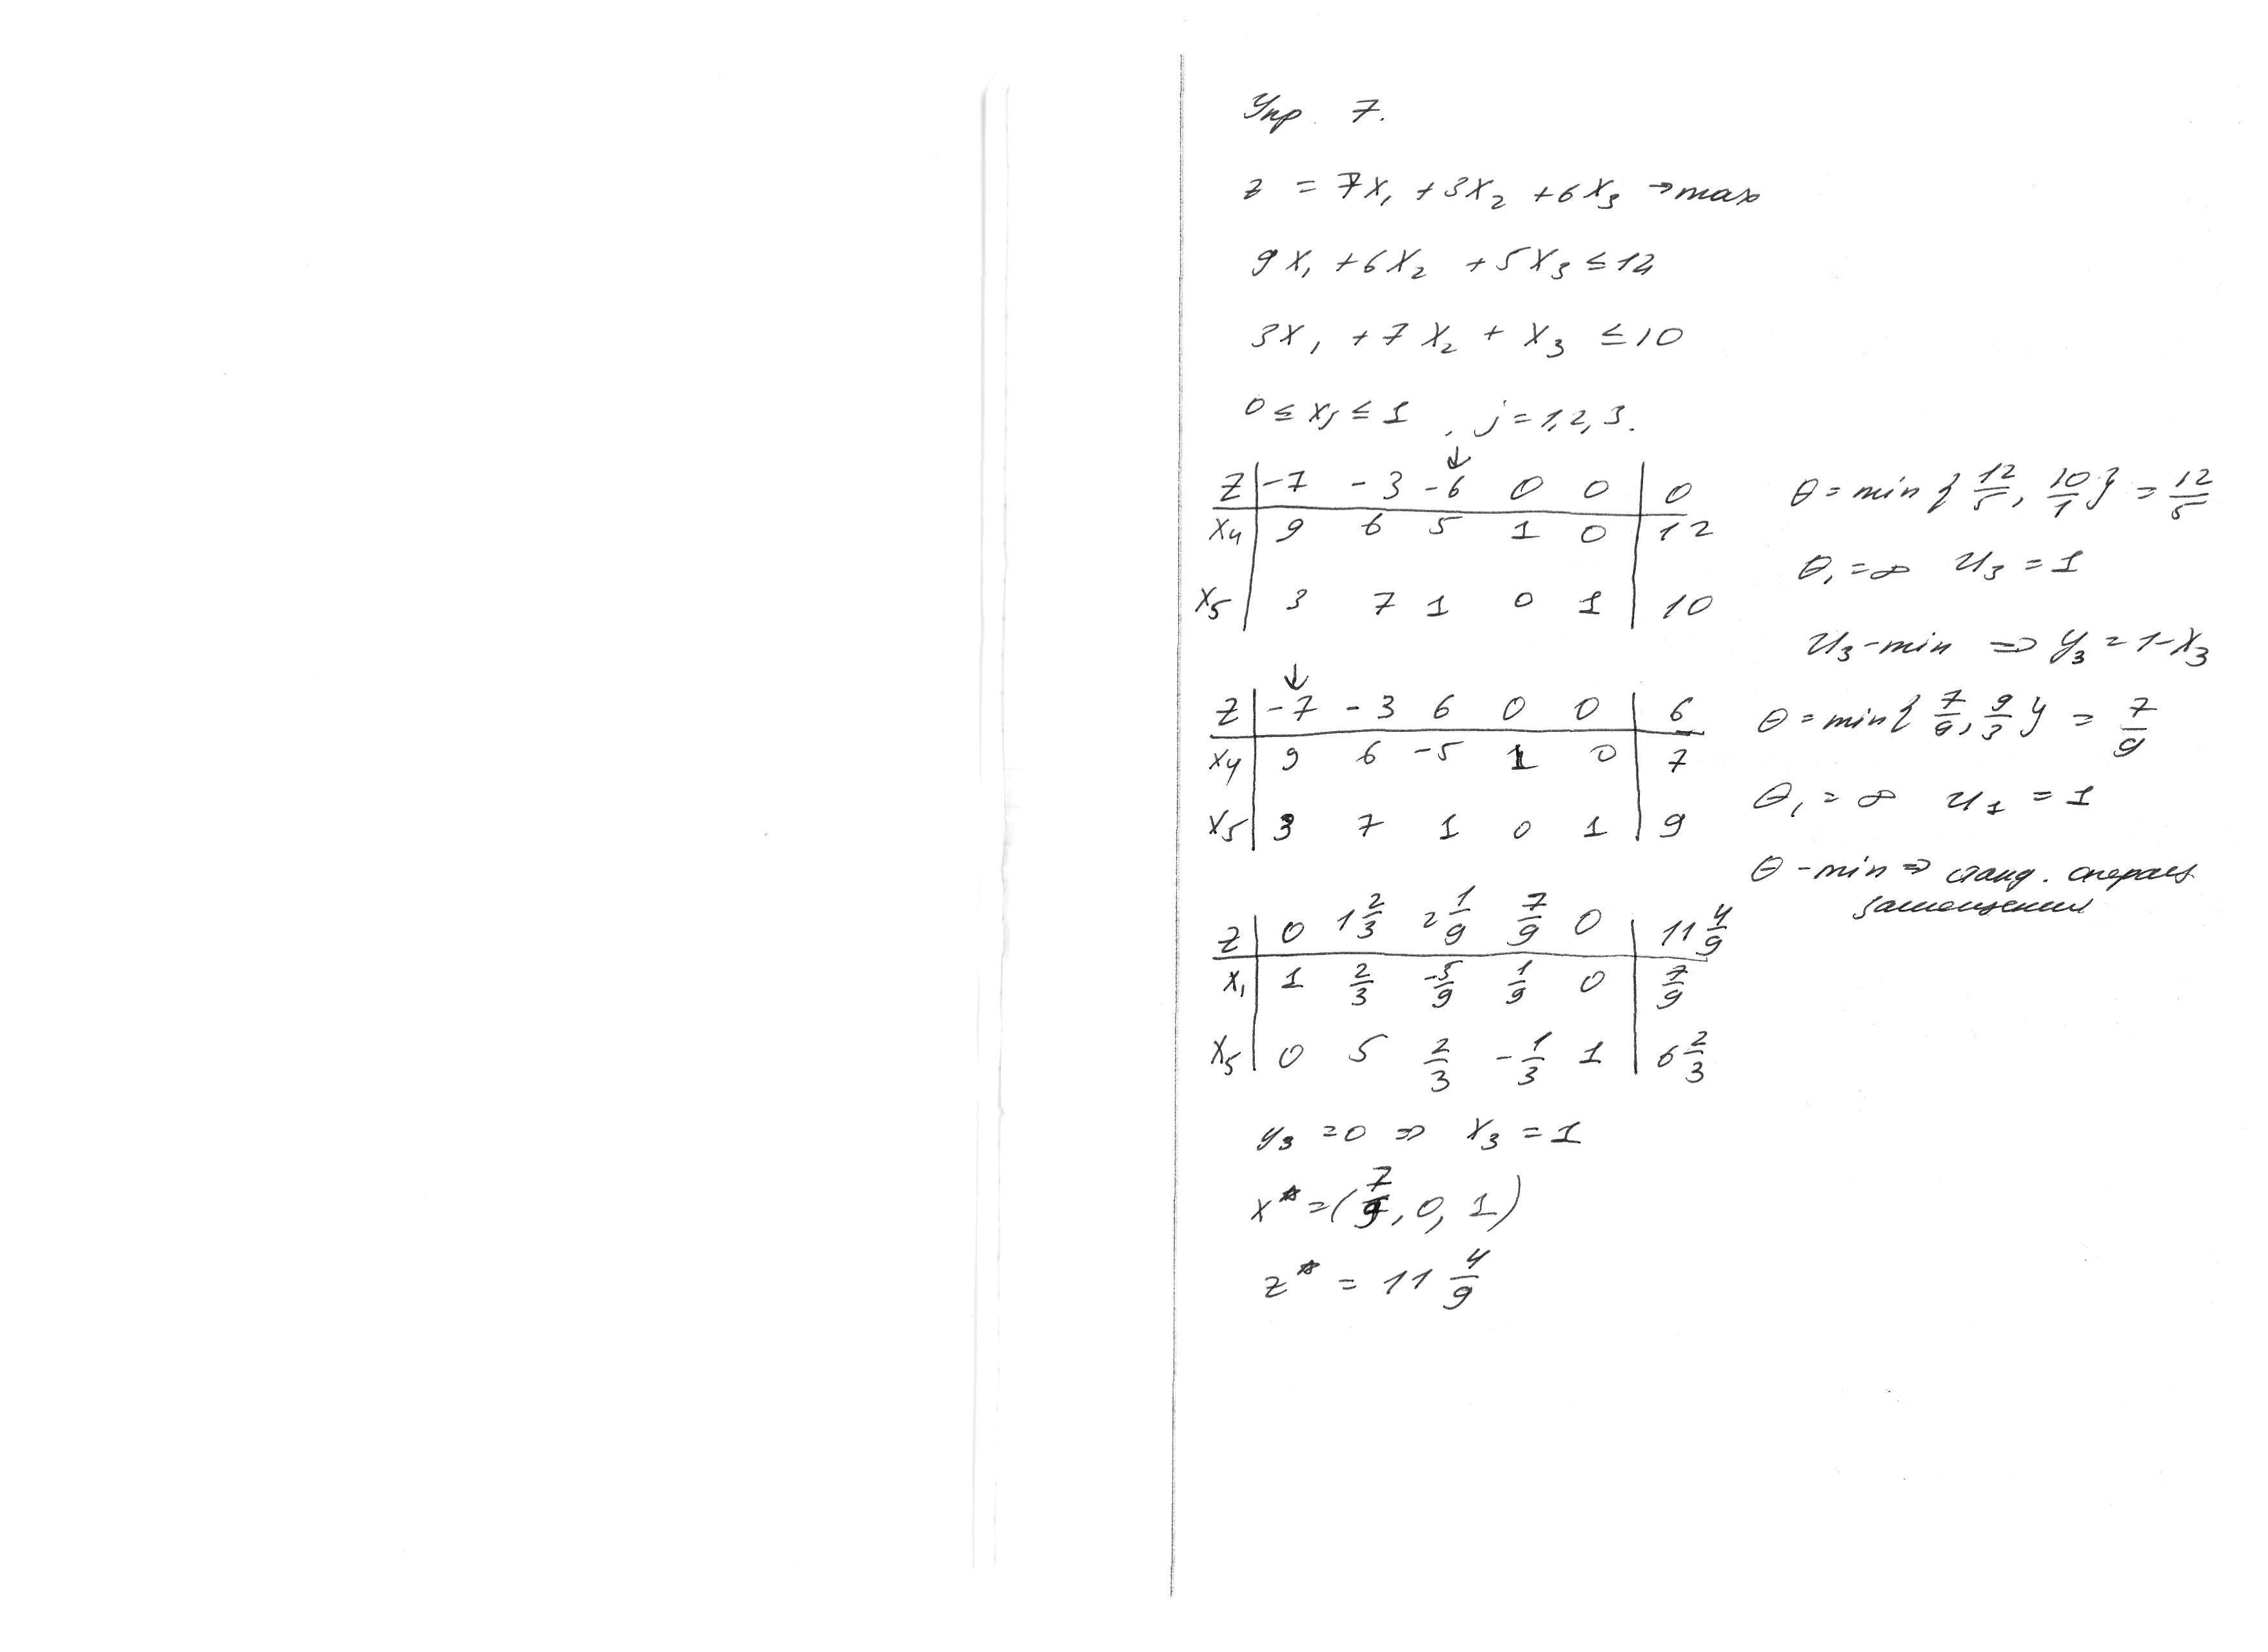 Упр. 7.
z = 7x₁ + 3x₂ + 6x₃ → max
9x₁ + 6x₂ + 5x₃ ≤ 12
3x₁ + 7x₂ + x₃ ≤ 10
0 ≤ xⱼ ≤ 1, j = 1, 2, 3.
↓
z | -7 -3 -6 0 0 | 0
x₄ | 9 6 5 1 0 | 12
x₅ | 3 7 1 0 1 | 10
θ = min { 12/5, 10/1 } = 12/5
θ₁ = ∞ u₃ = 1
u₃ - min ⇒ y₃ = 1 - x₃
↓
z | -7 -3 6 0 0 | 6
x₄ | 9 6 -5 1 0 | 7
x₅ | 3 7 1 0 1 | 9
θ = min { 7/9, 9/3 } = 7/9
θ₁ = ∞ u₁ = 1
θ - min ⇒ станд. операц.
замещения
z | 0 1 2/3 2 1/9 7/9 0 | 11 4/9
x₁ | 1 2/3 -5/9 1/9 0 | 7/9
x₅ | 0 5 2/3 -1/3 1 | 6 2/3
y₃ = 0 ⇒ x₃ = 1
x* = (7/9, 0, 1)
z* = 11 4/9